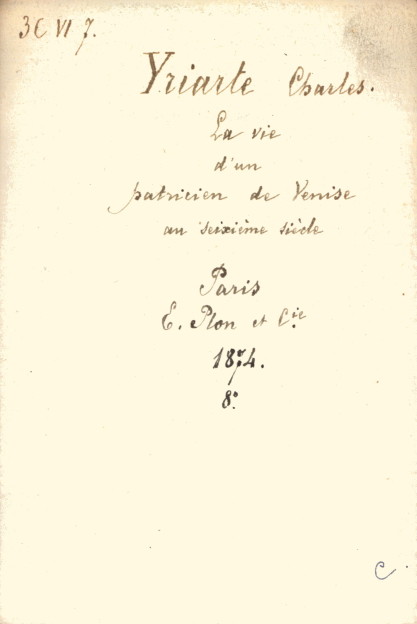 3C VI 7.
Yriarte Charles.
La vie
d'un
patricien de Venise
au seixième siècle
Paris
E. Plon et Cie.
1874.
8°.
C